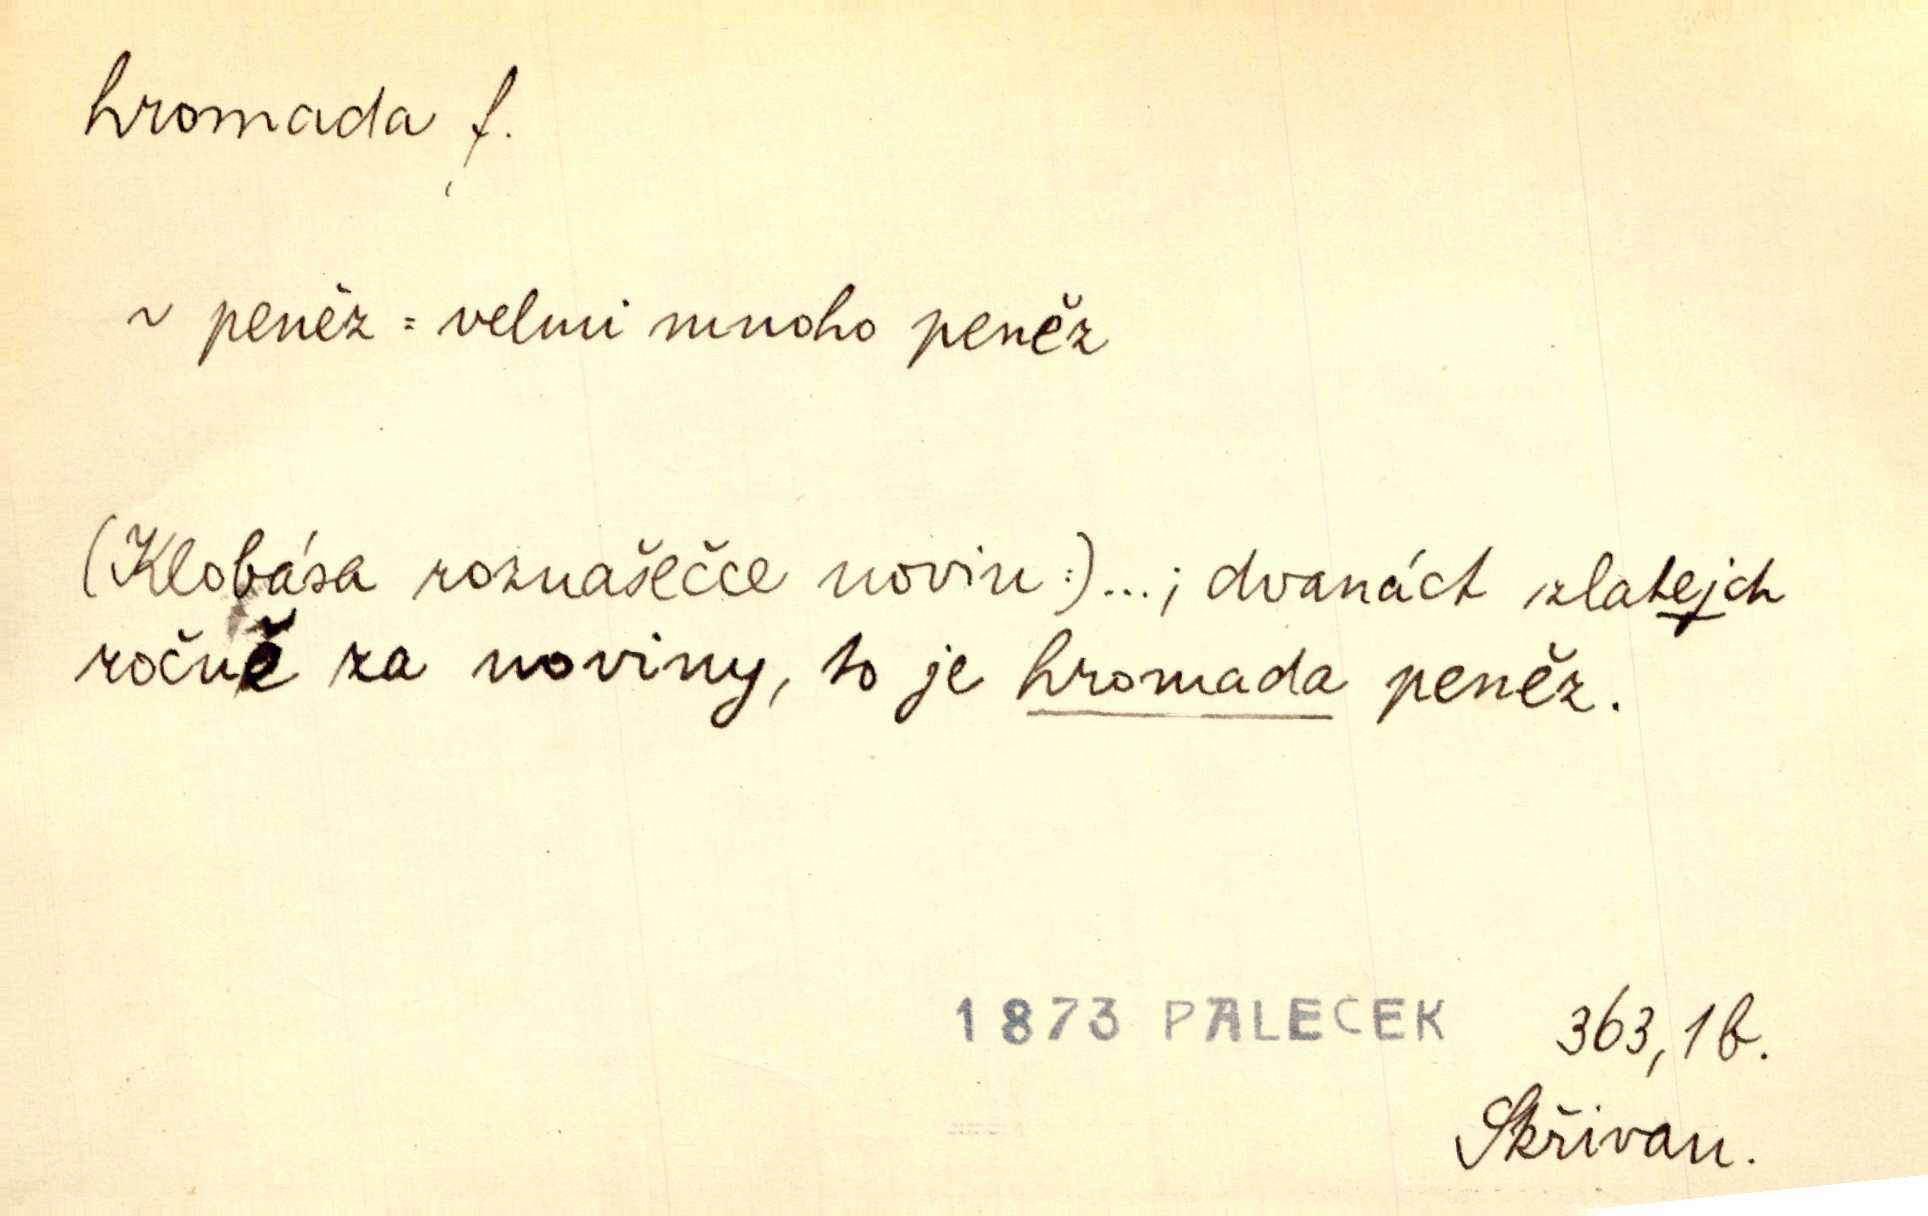 hromada f.
~ peněz = velmi mnoho peněz
(Klobása roznašečce novin:)...; dvanáct zlatejch
ročně za noviny, to je hromada peněz.
1873 PALECEK 363, 1 b.
Skřivan.